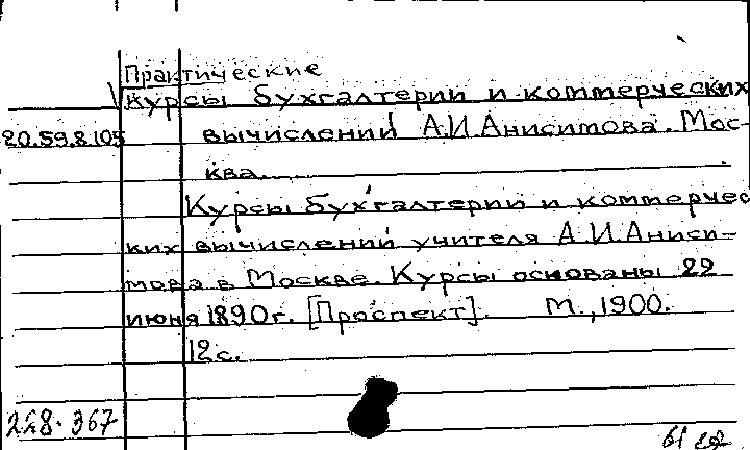 Практические
курсы бухгалтерии и коммерческих
20.59.8.105 вычислений А.И.Анисимова. Мос-
ква.
Курсы бухгалтерии и коммерчес
ких вычислений учителя А.И.Аниси-
мова в Москве. Курсы основаны 22
июня 1890г. [Проспект]. М., 1900.
12с.
248-367
61